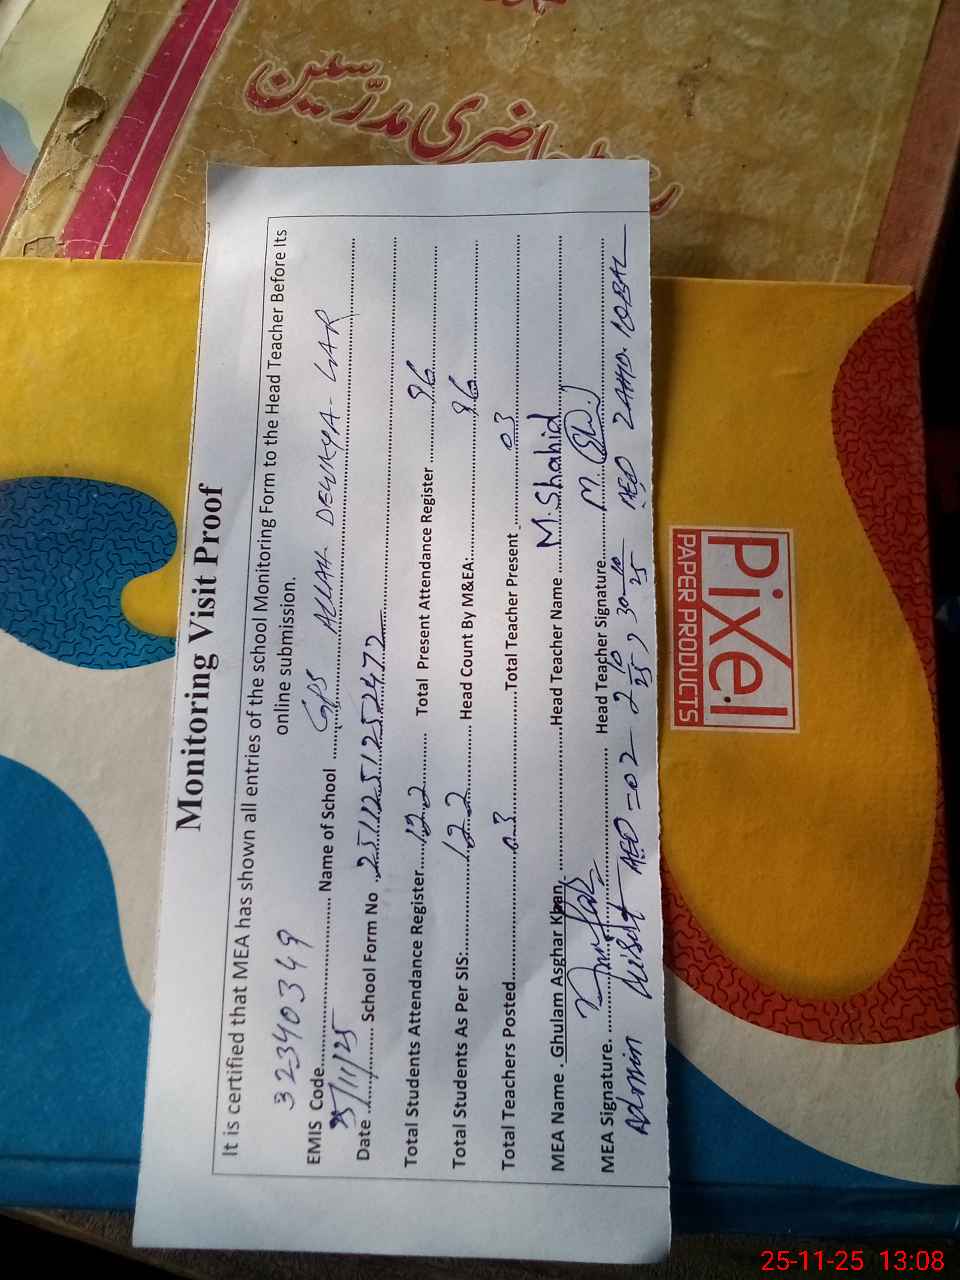 حاضری مدرسین
Monitoring Visit Proof
It is certified that MEA has shown all entries of the school Monitoring Form to the Head Teacher Before Its
online submission.
32340349
EMIS Code............ Name of School ...... GPS ALLAH DEWAYA - LAR
25/11/25
Date ............ School Form No .2511251252472
Total Students Attendance Register....122....... Total Present Attendance Register .......96
Total Students As Per SIS:............122....... Head Count By M&EA:............96
Total Teachers Posted............03............Total Teacher Present ............03
MEA Name . Ghulam Asghar Khan. ............Head Teacher Name ....M.Shahid
MEA Signature. ............ Head Teacher Signature....... M.
Admin Visit AEO = 02 - 2-10/25, 30-10/25 AEO ZAHID IQBAL
Pixel
PAPER PRODUCTS
25-11-25 13:08